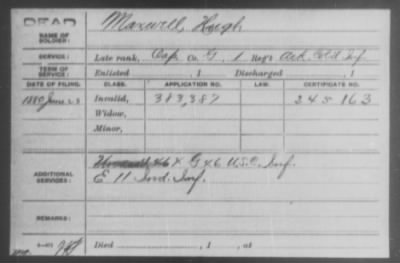 DEAD
NAME OF SOLDIER: Maxwell, Hugh
SERVICE: Late rank, Cap. Co. G, 1 Reg't Ark. Cold. Inf.
TERM OF SERVICE: Enlisted , 1 Discharged , 1
DATE OF FILING. CLASS. APPLICATION NO. LAW. CERTIFICATE NO.
1880 June Invalid, 383,387 245 163
Widow,
Minor,
ADDITIONAL SERVICES: G 46 U.S.C. Inf.
E 11 Ind. Inf.
REMARKS:
Died , 1 , at